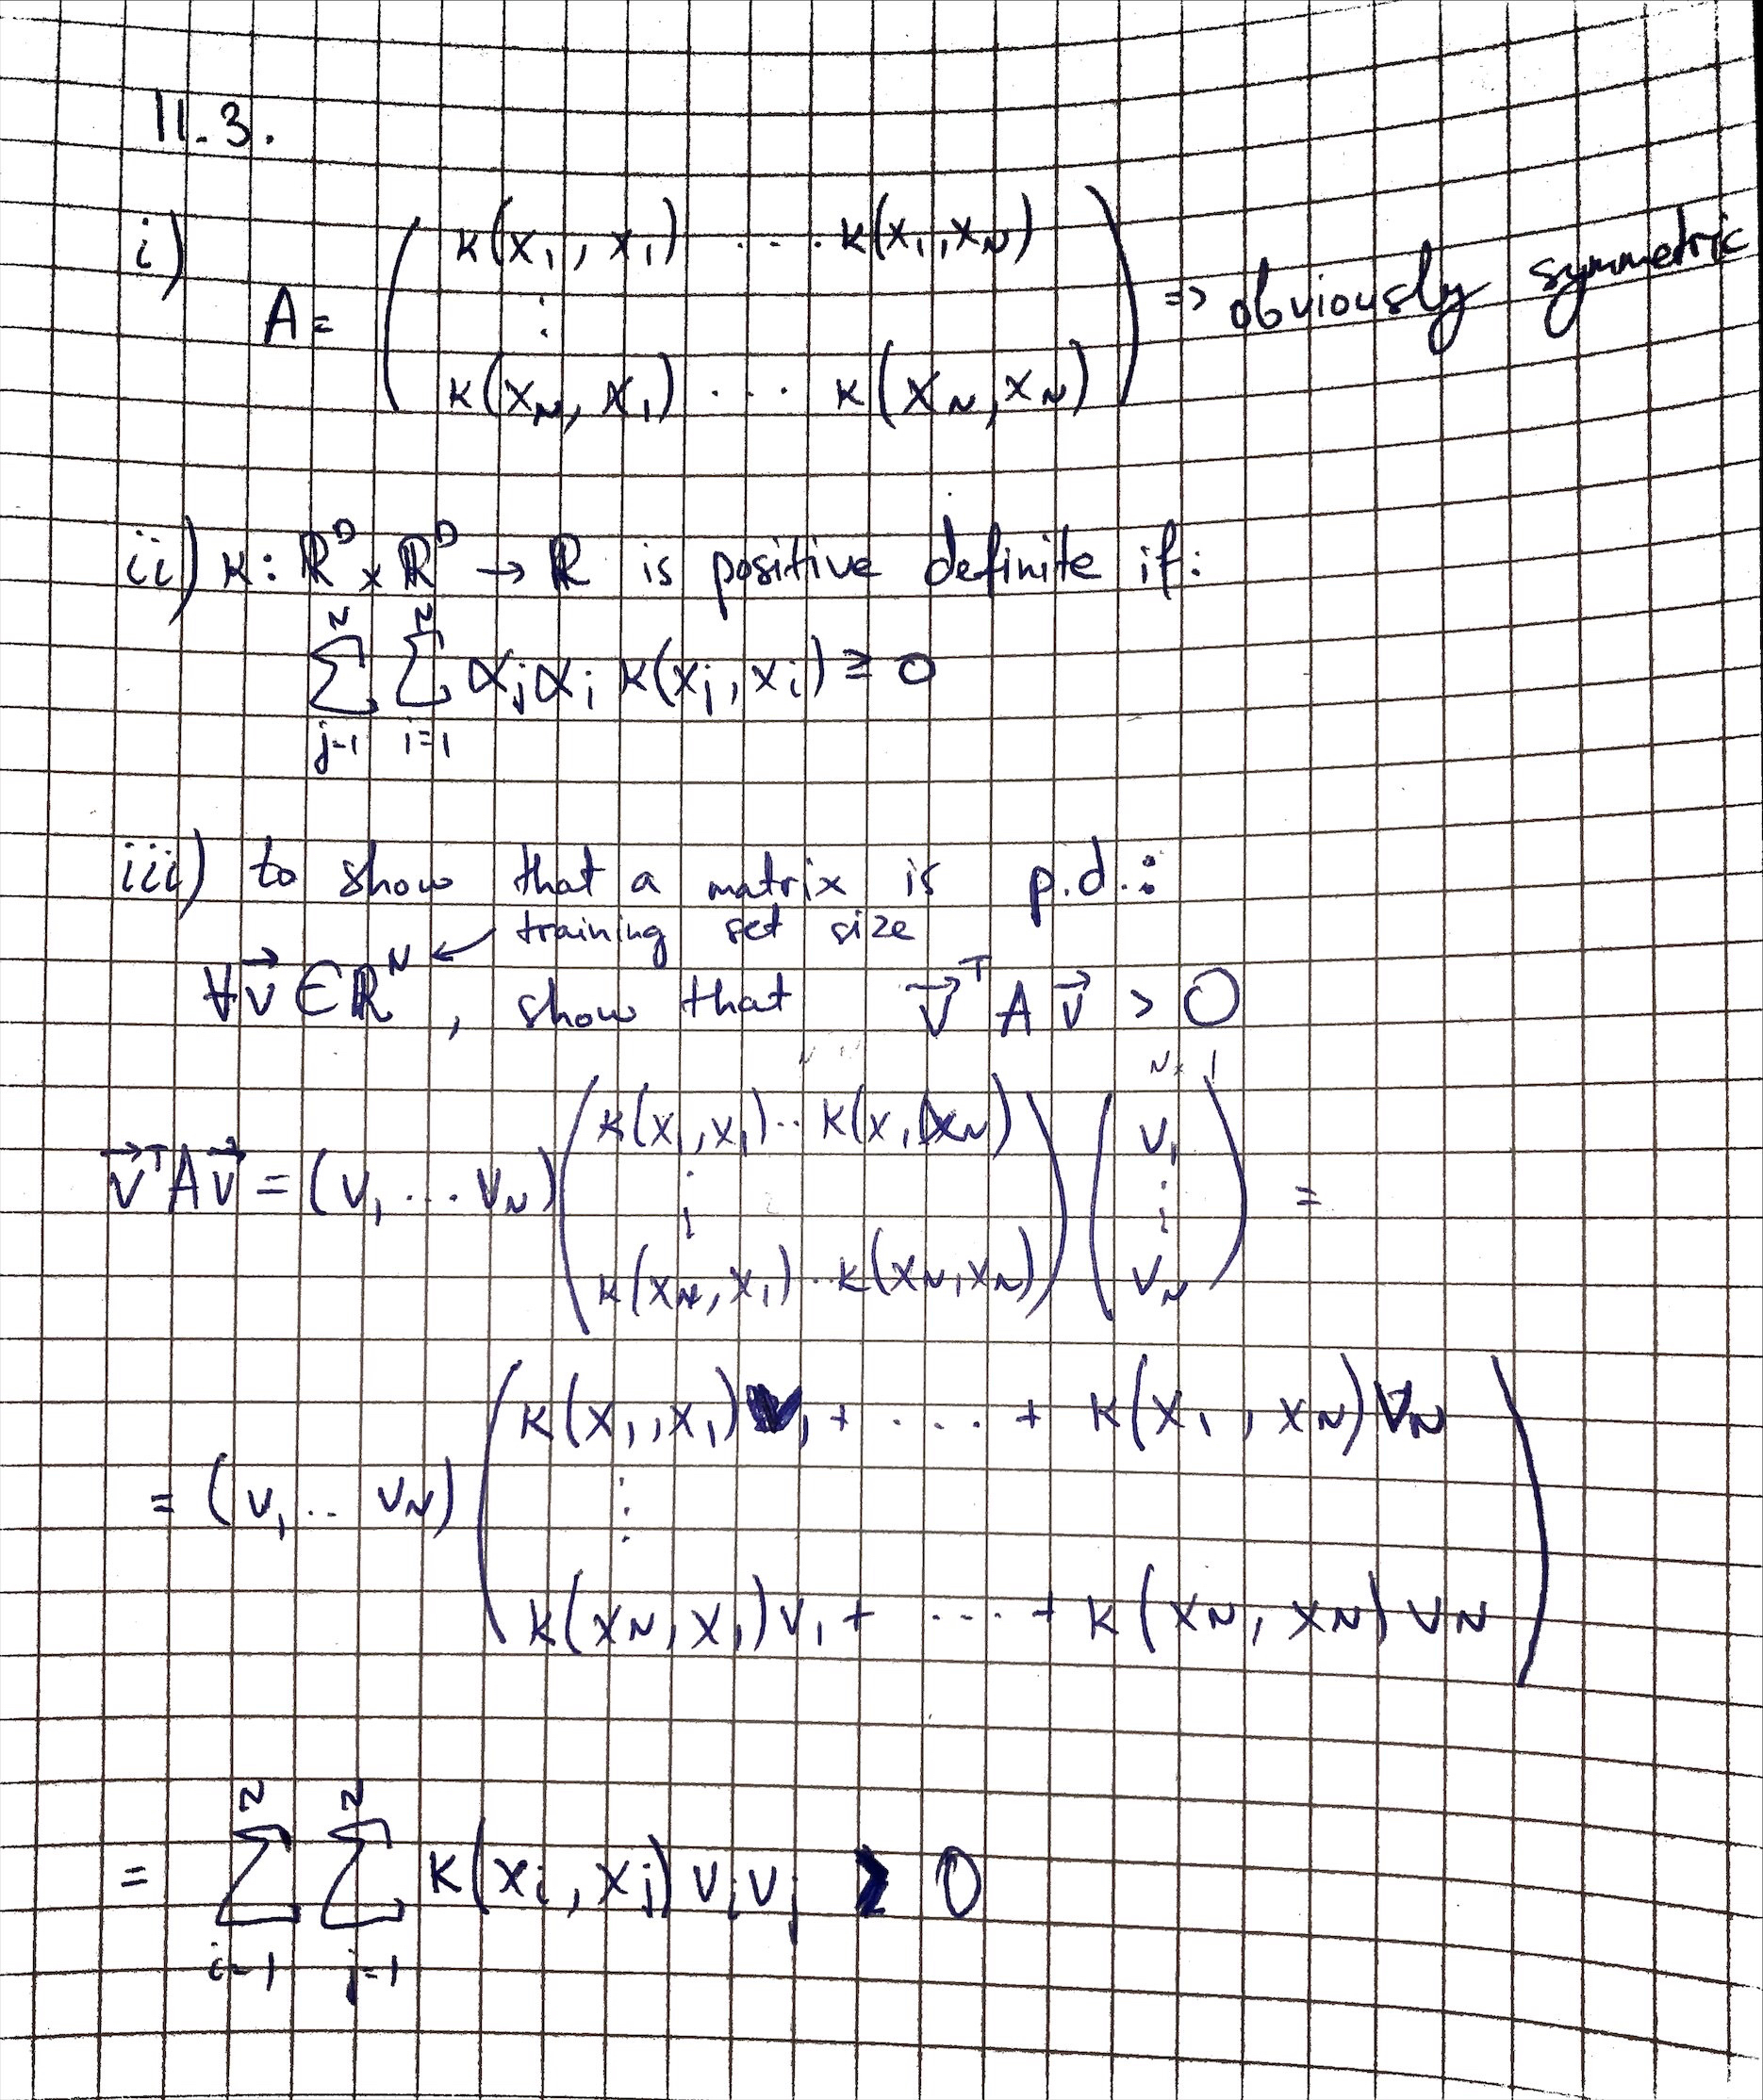 11.3.
i) A = ( κ(x₁, x₁) ... κ(x₁, x_N)
⋮
κ(x_N, x₁) ... κ(x_N, x_N) ) => obviously symmetric
ii) κ: ℝᴰ × ℝᴰ → ℝ is positive definite if:
∑_{j=1}^{N} ∑_{i=1}^{N} α_j α_i κ(x_j, x_i) ≥ 0
iii) to show that a matrix is p.d.:
training set size
∀v⃗ ∈ ℝᴺ, show that v⃗ᵀ A v⃗ > 0
N× 1
v⃗ᵀ A v⃗ = (v₁ ... v_N) ( κ(x₁, x₁) .. κ(x₁, x_N)
⋮
κ(x_N, x₁) .. κ(x_N, x_N) ) ( v₁ ⋮ v_N ) =
= (v₁ .. v_N) ( κ(x₁, x₁) v₁ + .... + κ(x₁, x_N) v_N
⋮
κ(x_N, x₁) v₁ + .... + κ(x_N, x_N) v_N )
= ∑_{i=1}^{N} ∑_{j=1}^{N} κ(x_i, x_j) v_i v_j ≥ 0